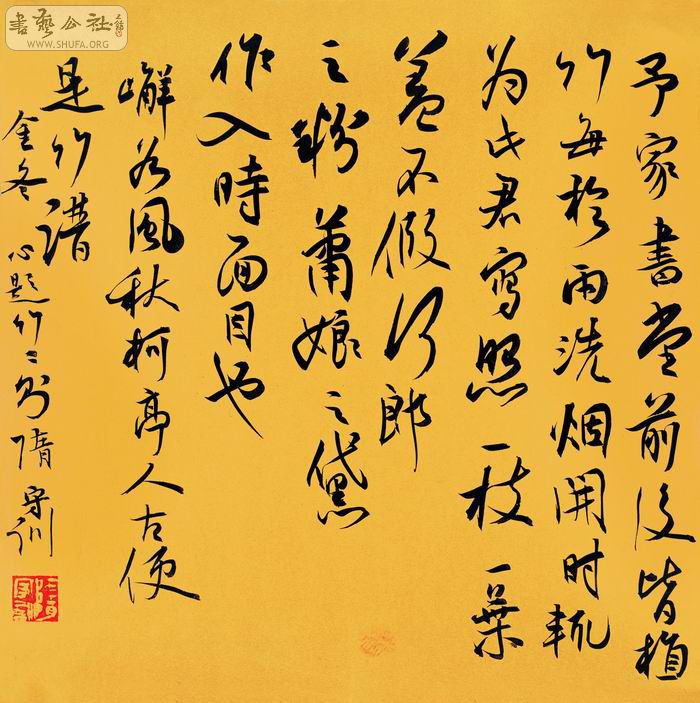 書藝公社
WWW.SHUFA.ORG
予家書堂前後皆植
竹每於雨洗烟開时輒
为此君寫照一枝一葉
蓋不假何郎
之粉蕭娘之黛
作入時面目也
嶰谷風秋柯亭人古便
是竹譜
金冬心題竹二则隋守训